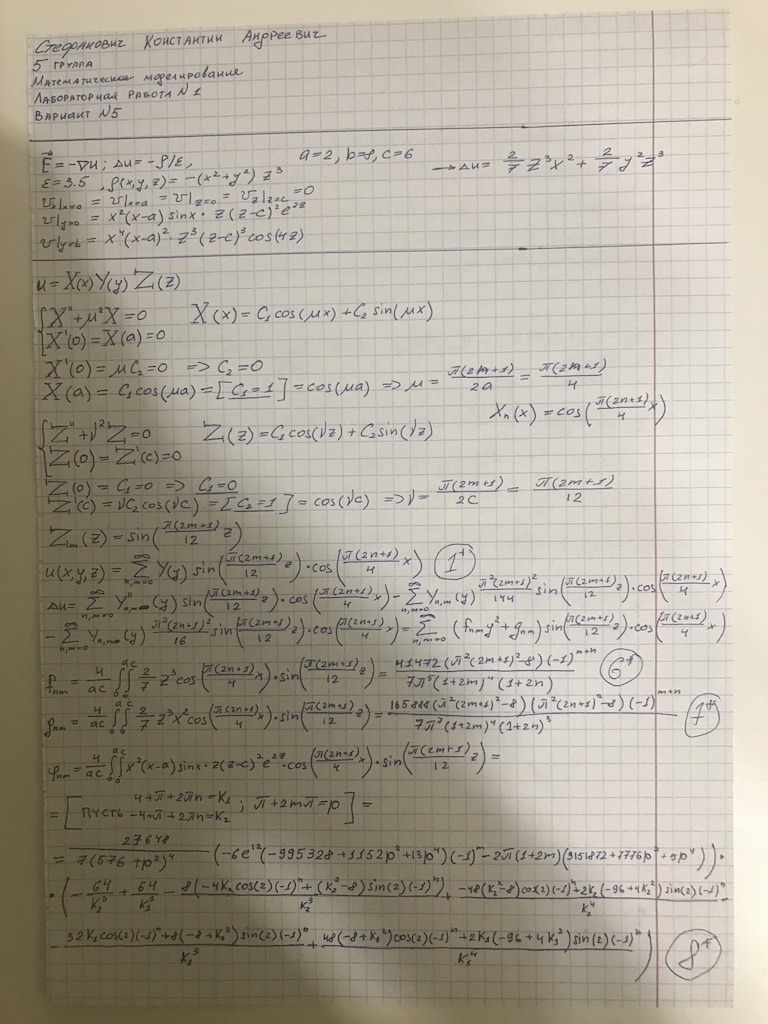 Стефанович Константин Андреевич
5 группа
Математическое моделирование
Лабораторная работа N1
Вариант N5
E⃗ = -∇u; Δu = -ρ/ε, a=2, b=8, c=6 → Δu = 2/7 z³x² + 2/7 y²z³
ε = 3.5, ρ(x,y,z) = -(x²+y²) z³
v'x|x=0 = v|x=a = v|z=0 = v'z|z=c = 0
v|y=0 = x²(x-a) sinx · z(z-c)² e^2z
v|y=b = x⁴(x-a)² · z³(z-c)³ cos(4z)
u = X(x) Y(y) Z(z)
{ X'' + μ²X = 0 X(x) = C₁ cos(μx) + C₂ sin(μx)
X'(0) = X(a) = 0
X'(0) = μC₂ = 0 => C₂ = 0
X(a) = C₁cos(μa) = [C₁=1] = cos(μa) => μ = π(2n+1)/2a = π(2n+1)/4
Xn(x) = cos(π(2n+1)/4 x)
{ Z'' + ν²Z = 0 Z(z) = C₁cos(νz) + C₂sin(νz)
Z(0) = Z'(c) = 0
Z(0) = C₁ = 0 => C₁ = 0
Z'(c) = νC₂cos(νc) = [C₂=1] = cos(νc) => ν = π(2m+1)/2c = π(2m+1)/12
Zm(z) = sin(π(2m+1)/12 z)
u(x,y,z) = Σ∞n,m=0 Y(y) sin(π(2m+1)/12 z) · cos(π(2n+1)/4 x) (1*)
Δu = Σ∞n,m=0 Y''n,m(y) sin(π(2m+1)/12 z) · cos(π(2n+1)/4 x) - Σ∞n,m=0 Yn,m(y) π²(2m+1)²/144 sin(π(2m+1)/12 z) · cos(π(2n+1)/4 x)
- Σ∞n,m=0 Yn,m(y) π²(2n+1)²/16 sin(π(2m+1)/12 z) · cos(π(2n+1)/4 x) = Σ∞n,m=0 (fnm y² + gnm) sin(π(2m+1)/12 z) · cos(π(2n+1)/4 x)
fnm = 4/ac ∫∫ 2/7 z³ cos(π(2n+1)/4 x) · sin(π(2m+1)/12 z) = 41472(π²(2m+1)²-8)(-1)^m+n / 7π⁵(1+2m)⁴(1+2n) (6*)
gnm = 4/ac ∫∫ 2/7 z³x² cos(π(2n+1)/4 x) · sin(π(2m+1)/12 z) = 165888(π²(2m+1)²-8)(π²(2n+1)²-8)(-1)^m+n / 7π⁷(1+2m)⁴(1+2n)³ (7*)
φnm = 4/ac ∫∫ x²(x-a) sinx · z(z-c)² e^2z · cos(π(2n+1)/4 x) · sin(π(2m+1)/12 z) =
= [ пусть 4+π+2πn = K₁ -4+π+2πn = K₂ ; π+2mπ = p ] =
= 27648 / 7(576+p²)⁴ (-6e¹²(-995328+1152p²+13p⁴)(-1)^m - 2π(1+2m)(3151872+7776p²+5p⁴)) ·
· (-64/K₂³ + 64/K₁³ - 8(-4K₂cos(2)(-1)ⁿ+(K₂²-8)sin(2)(-1)ⁿ)/K₂³ + -48(K₂²-8)cos(2)(-1)ⁿ+2K₂(-96+4K₂²)sin(2)(-1)ⁿ/K₂⁴ -
- 32K₁cos(2)(-1)ⁿ+8(-8+K₁²)sin(2)(-1)ⁿ/K₁³ + 48(-8+K₁²)cos(2)(-1)ⁿ+2K₁(-96+4K₁²)sin(2)(-1)ⁿ/K₁⁴) (8*)